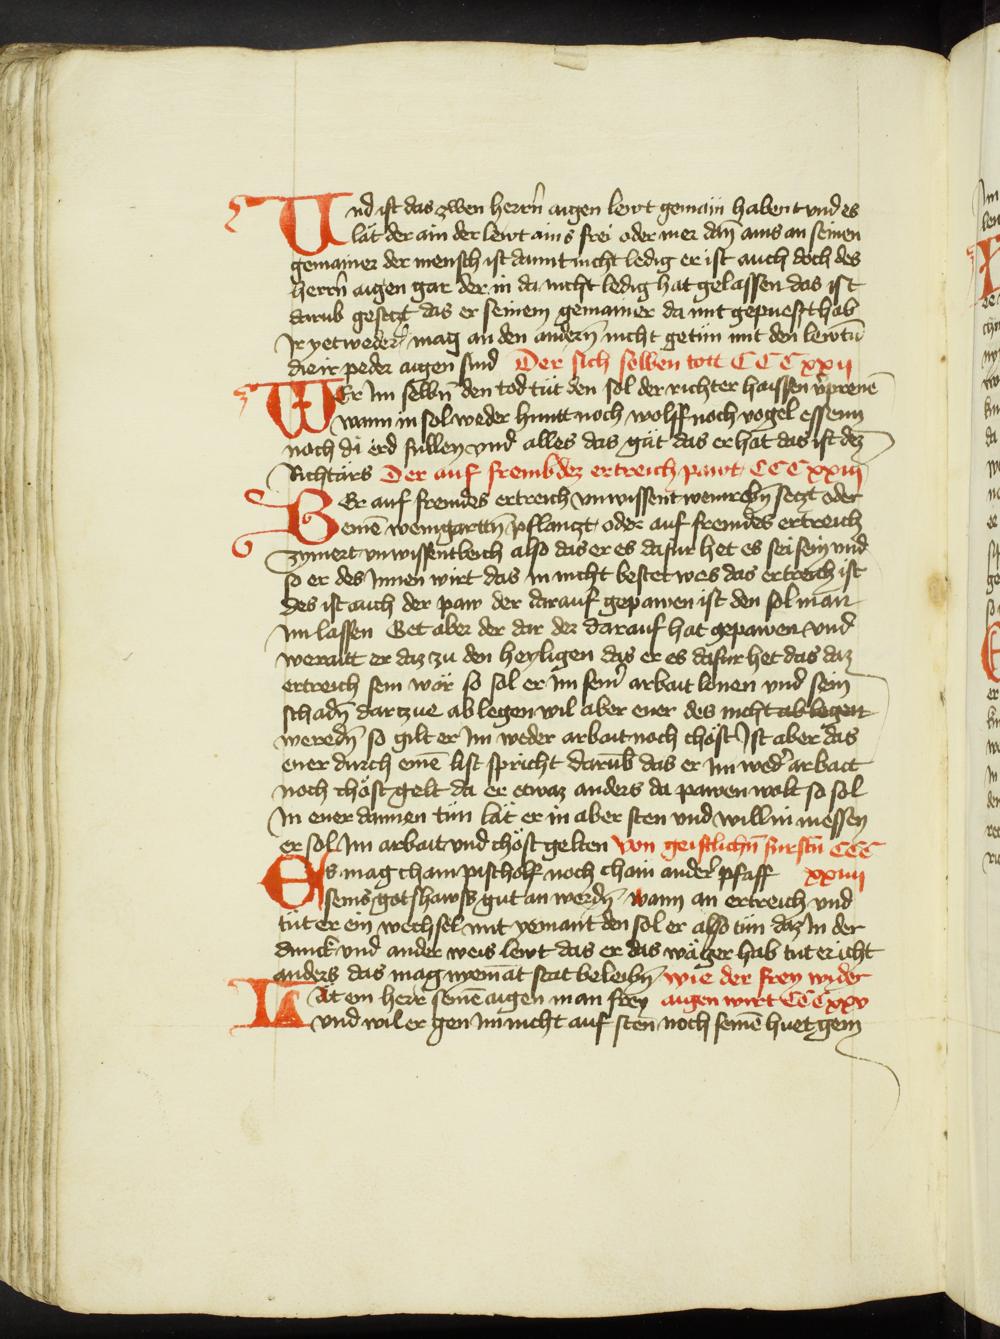 Und ist das zwen herrn̄ aigen lewt gemain habent vnd es
lät der ain der lewt ains frei oder mer dan̄ ains an seinen
gemainer der mensch ist damit nicht ledig er ist auch doch des
herrn̄ aigen gar der in da nicht ledig hat gelassen das ist
darub gesetzt das er seinem gemainer da mit gepuest hab
Jr yetweder mag an den andern̄ nicht getün mit den lewtn̄
die ir peder aigen sind Der sich selben tott CCCxxij
Wer Im selbn̄ den tod tüt den sol der richter haissen v̓prenē
wann in sol weder huntt noch wolff noch vogel essenn
noch di erd fullen vnd alles das güt das er hat das ist dez
Richtärs Der auf frembdez ertreich pawt CCCxxiij
Ber auf fremdes ertreich vnwissent weinrebn̄ setzt oder
eine weingarttn̄ pflanzt oder auf fremdes ertreich
zymert vnwissentleich also das er es dafur het es sei sein vnd
so er des Innen wirt das in nicht bestet wes das ertreich ist
des ist auch der paw der darauf gepawen ist den sol man
Im lassen Get aber der dar der darauf hat gepawen vnd
weraitt er daz zu den heyligen das er es dafur het das daz
ertreich sein wär so sol er Im sein̄ arbait lonen vnd sein
schadn̄ dartzue ablegen wil aber ener des nicht ablegen
weredn̄ so gilt er Im weder arbait noch chöst Ist aber das
ener durch einē list spricht darub̄ das er Im wed̓ arbait
noch chöst gelt da er etwaz anders da pawen wolt so sol
In ener dannen tün lät er in aber sten vnd will in niessen
er sol Im arbait vnd chöst gelten Von geistlichn̄ fursten̄ CCC
Es mag chain pischolf noch chain ander̓ pfaff xxiiij
seins gotshawss gut an werdn̄ wann an ertreich vnd
tüt er ein wechsel mit yemant den sol er also tün daz In der
dunck vnd ander weis lewt das er das wäger hab tut er icht
anders das mag niemāt stät beleibn̄ wie der frey wider
Lät ein herr seinē aigen man frey aigen wirt CCCxxv
vnd wil er gen Im nicht auf sten noch seinē huet gein